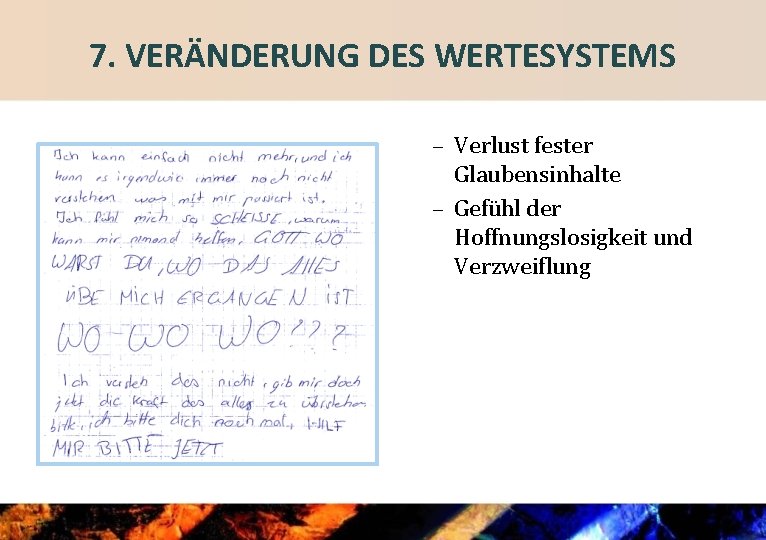 7. VERÄNDERUNG DES WERTESYSTEMS
Ich kann einfach nicht mehr, und ich
kann es irgendwie immer noch nicht
verstehen was mit mir passiert ist.
Ich fühl mich so SCHEISSE, warum
kann mir nimand helfen, GOTT WO
WARST DU, WO DAS ALLES
ÜBE MICH ERGANGEN IST
WO-WO WO???
Ich versteh des nicht, gib mir doch
jetzt die Kraft des alles zu überstehen
bitte, ich bitte dich noch mal, HILF
MIR BITTE JETZT
– Verlust fester
Glaubensinhalte
– Gefühl der
Hoffnungslosigkeit und
Verzweiflung